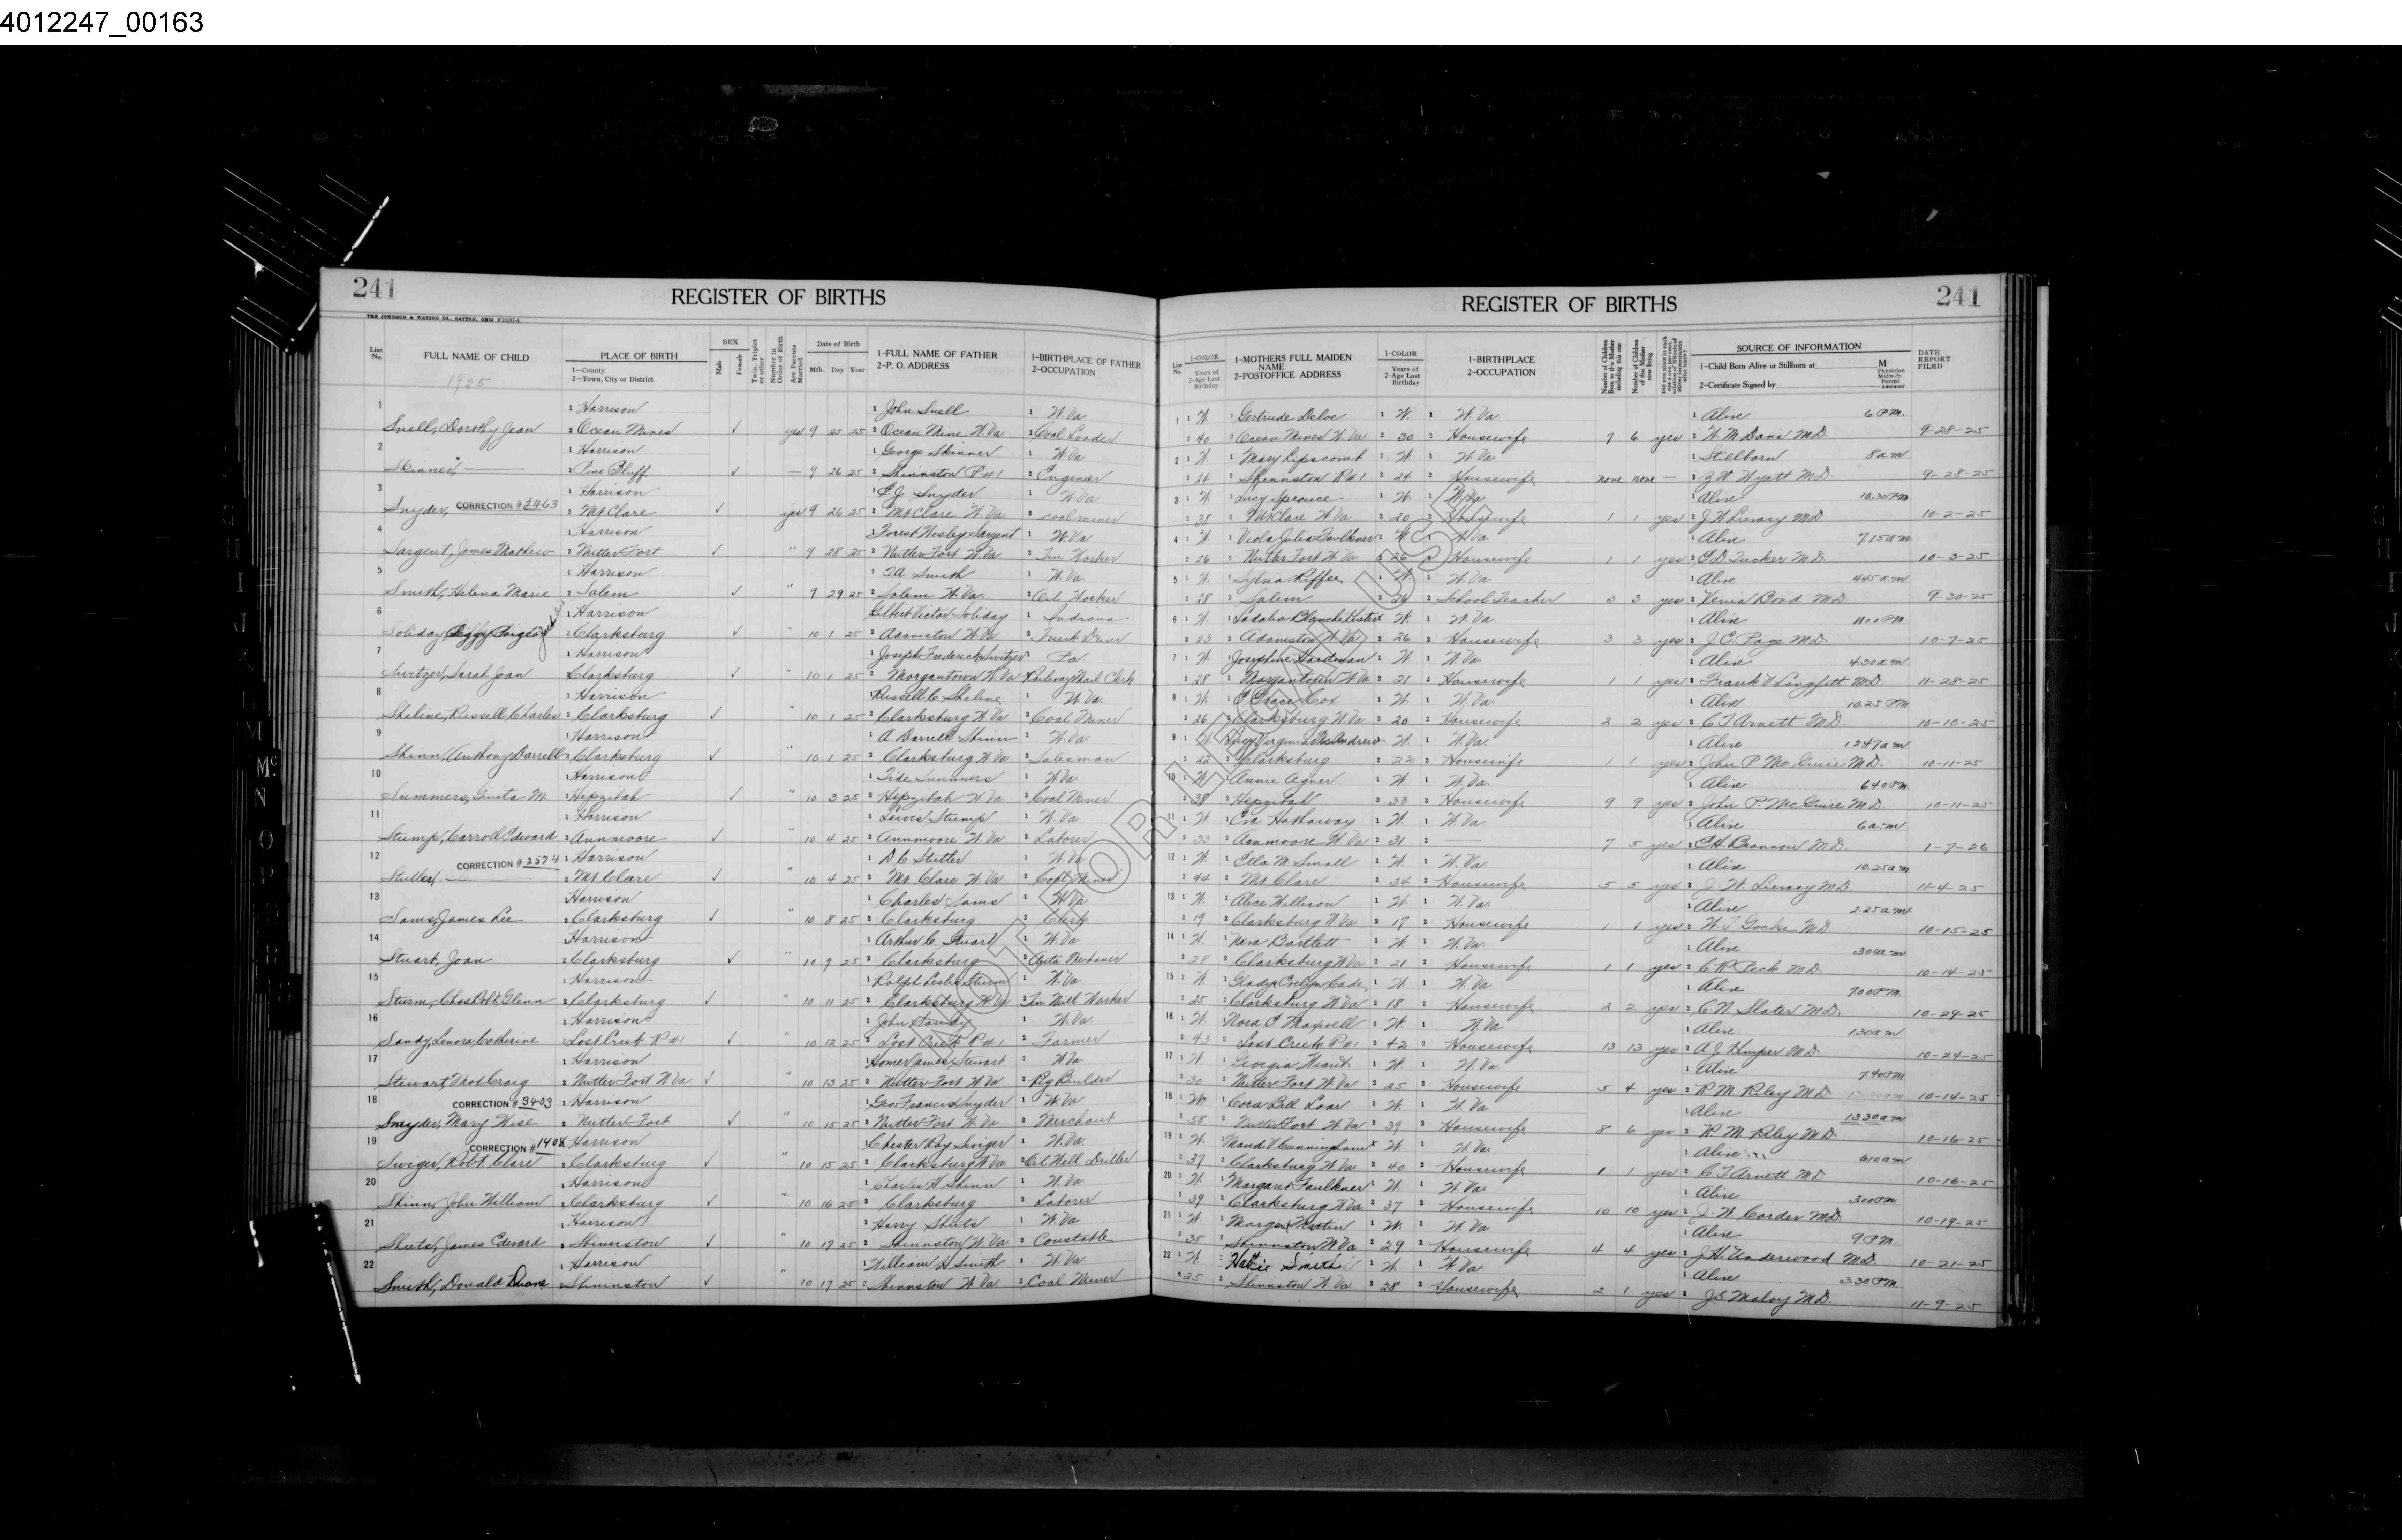 4012247_00163
241
REGISTER OF BIRTHS
THE JOHNSON & WATSON CO., DAYTON, OHIO
Line No.
FULL NAME OF CHILD
1925
PLACE OF BIRTH
1—County
2—Town, City or District
SEX
Male
Female
Twin, Triplet or other
Number in Order of Birth
Are Parents Married
Date of Birth
Mth. Day Year
1-FULL NAME OF FATHER
2-P. O. ADDRESS
1-BIRTHPLACE OF FATHER
2-OCCUPATION
1 1 Harrison 1 John Snell 1 W. Va.
Snell, Dorothy Jean 2 Ocean Mines ✓ yes 9 25 25 2 Ocean Mine W Va 2 Coal Loader
2 1 Harrison 1 George Skinner 1 W. Va.
Skinner, 2 Pine Bluff ✓ — 9 26 25 2 Shinnston R#1 2 Engineer
3 1 Harrison 1 E J Snyder 1 W. Va
Snyder, CORRECTION # 2463 2 Mt Clare ✓ yes 9 26 25 2 Mt Clare W Va 2 coal miner
4 1 Harrison Forrest Wesley Sargent 1 W. Va
Sargent, James Mathew 2 Nutter Fort ✓ " 9 28 25 2 Nutter Fort W. Va 2 Tin Worker
5 1 Harrison 1 T.A. Smith 1 W. Va.
Smith, Helena Marie 2 Salem ✓ " 9 29 25 2 Salem W. Va. 2 Oil Worker
6 1 Harrison Gilbert Victor Soliday 1 Indiana
Soliday, Peggy 2 Clarksburg ✓ " 10 1 25 2 Adamston W. Va 2 Truck Driver
7 1 Harrison 1 Joseph Frederick Switzer 1 Pa.
Switzer, Sarah Jean Clarksburg ✓ " 10 1 25 2 Morgantown W. Va Railway Mail Clerk
8 1 Harrison Russell C. Sheline 1 W. Va.
Sheline, Russell Charles 2 Clarksburg ✓ " 10 1 25 2 Clarksburg W Va 2 Coal Miner
9 1 Harrison 1 A. Darrell Shinn 1 W. Va.
Shinn, Anthony Darrell 2 Clarksburg ✓ " 10 1 25 2 Clarksburg W Va 2 Salesman
10 1 Harrison 1 Summers 1 W Va.
Summers, M. 2 Hepzibah ✓ " 10 3 25 2 Hepzibah W Va 2 Coal Miner
11 1 Harrison 1 Lewis Stump 1 W. Va
Stump, Carroll Edward 2 Annmoore ✓ " 10 4 25 2 Annmoore W. Va 2 Laborer
12 CORRECTION # 2574 1 Harrison 1 D C Stutler 1 W. Va
Stutler, 2 Mt. Clare ✓ " 10 4 25 2 Mt Clare W Va 2 Coal Miner
13 Harrison 1 Charles Sams 1 W Va
Sams, James Lee 2 Clarksburg ✓ " 10 8 25 2 Clarksburg 2 Clerk
14 Harrison 1 Arthur C. Stuart 1 W. Va
Stuart, Joan 2 Clarksburg ✓ " 10 9 25 2 Clarksburg 2 Auto Mechanic
15 1 Harrison 1 Ralph Leslie Sturm 1 W. Va.
Sturm, Chas Robt. Glenn 2 Clarksburg ✓ " 10 11 25 2 Clarksburg W. Va 2 Tin Mill Worker
16 1 Harrison 1 John Sandy 1 W. Va.
Sandy, Lenora Catherine 2 Lost Creek R #1 ✓ " 10 12 25 2 Lost Creek R #1 2 Farmer
17 1 Harrison Homer James Stewart 1 W Va
Stewart, Craig 2 Nutter Fort W Va ✓ " 10 13 25 2 Nutter Fort W. Va 2 Rig Builder
18 CORRECTION # 3403 1 Harrison Geo Francis Snyder 1 W. Va
Snyder, Mary Wise 2 Nutter Fort ✓ " 10 15 25 2 Nutter Fort W. Va 2 Merchant
19 CORRECTION # 1408 Harrison Chester Ray Swiger 1 W. Va.
Swiger, Robt. Clare 2 Clarksburg ✓ " 10 15 25 2 Clarksburg W Va. 2 Oil Well Driller
20 1 Harrison 1 Charles A Shinn 1 W. Va.
Shinn, John William 2 Clarksburg ✓ " 10 16 25 2 Clarksburg 2 Laborer
21 1 Harrison 1 Harry Sheets 1 W. Va
Sheets, James Edward 2 Shinnston ✓ " 10 17 25 2 Shinnston W. Va 2 Constable
22 1 Harrison 1 William H Smith 1 W. Va
Smith, Donald Duane 2 Shinnston ✓ " 10 17 25 2 Shinnston W. Va 2 Coal Miner
REGISTER OF BIRTHS
241
Line No.
1-COLOR
Years of
2-Age Last Birthday
1-MOTHERS FULL MAIDEN NAME
2-POSTOFFICE ADDRESS
1-COLOR
Years of
2-Age Last Birthday
1-BIRTHPLACE
2-OCCUPATION
Number of Children Born to this Mother including this one
Number of Children of this Mother now living
SOURCE OF INFORMATION
1-Child Born Alive or Stillborn at
2-Certificate Signed by
M Physician Midwife Parent Assessor
DATE REPORT FILED
1 1 W. 1 Gertrude Deloe 1 W. 1 W. Va. 1 Alive 6 P.M.
2 40 2 Ocean Mines W. Va 2 30 2 Housewife 7 6 yes 2 W. M Davis M.D. 9-28-25
2 1 W. 1 Mary Lipscomb 1 W. 1 W. Va. 1 Stillborn 8 am
2 Shinnston R#1 2 24 2 Housewife none none — 2 Wyatt M.D. 9-28-25
3 1 W. 1 Lucy Sprouce 1 W. 1 W. Va. 1 Alive 10.30 PM
2 38 2 Mt Clare W Va 2 20 2 Housewife 1 1 yes 2 J W M.D. 10-2-25
4 1 W. 1 Viola Julia Faulkner 1 W. W Va 1 Alive 7.15 am
2 26 Nutter Fort W Va 2 26 2 Housewife 1 1 yes 2 Tucker M.D. 10-3-25
5 1 W. 1 Riffee 1 W. 1 W. Va. 1 Alive 4.45 a.m.
2 28 2 Salem 2 26 2 School Teacher 3 3 yes 2 M.D. 9-30-25
6 1 W. Blanche 1 W. 1 W. Va. 1 Alive 11.00 PM
2 23 2 Adamston W Va 2 26 2 Housewife 3 3 yes 2 J.C. Page M.D. 10-7-25
7 1 W. Josephine Hardman 1 W. 1 W. Va 1 Alive 4.30 a.m.
2 28 2 Morgantown W Va 2 21 2 Housewife 1 1 yes 2 Frank V Langfitt M.D. 11-28-25
8 1 W. Grace Cox 1 W. 1 W. Va. 1 Alive 10.25 PM
2 26 2 Clarksburg W. Va 2 20 2 Housewife 2 2 yes 2 C T Arnett M.D. 10-10-25
9 1 W. Lucy Virginia McAndrews 1 W. 1 W. Va. 1 Alive 12.47 a.m.
2 22 2 Clarksburg 2 22 2 Housewife 1 1 yes 2 John P McGuire M.D. 10-11-25
10 W. 1 Annie Agner 1 W 1 W. Va. 1 Alive 6.40 P.M.
2 38 2 Hepzibah 2 33 2 Housewife 9 9 yes 2 John P. McGuire M.D. 10-11-25
11 1 W. Eva Hathaway 1 W. 1 W. Va. 1 Alive 6 a.m.
2 33 2 Annmoore W. Va 2 31 2 — 7 5 yes 2 Brannon M.D. 1-7-26
12 1 W. Ella M. Small 1 W. 1 W. Va 1 Alive 10.25 a.m.
2 44 2 Mt. Clare 2 34 2 Housewife 5 5 yes 2 J. W. M.D. 11-4-25
13 1 W. 1 Alice Willison 1 W. 1 W. Va. 1 Alive 2.25 a.m.
2 19 2 Clarksburg W. Va 2 17 2 Housewife 1 1 yes 2 W. T Gocke M.D. 10-15-25
14 1 W. Bartlett 1 W. 1 W. Va. 1 Alive 3.00 a.m.
2 28 2 Clarksburg W Va 2 21 2 Housewife 1 1 yes 2 C. R Peck M.D. 10-14-25
15 1 W. 1 Gladys Evelyn Cade 1 W 1 W. Va. 1 Alive 7.00 P.M.
2 25 2 Clarksburg W. Va 2 18 2 Housewife 2 2 yes 2 C. N. Slater M.D. 10-29-25
16 1 W. Nora E Maxwell 1 W. 1 W. Va 1 Alive 1.30 a.m
2 43 2 Lost Creek R#1 2 42 2 Housewife 13 13 yes 2 A J Kemper M.D. 10-24-25
17 1 W. Georgia 1 W. 1 W. Va 1 Alive 7.40 P.M.
2 30 2 Nutter Fort W. Va 2 25 2 Housewife 5 4 yes 2 R M Riley M.D. 10-14-25
18 1 W. 1 Cora Bell Loar 1 W. 1 W. Va. 1 Alive 1.30 a.m
2 58 2 Nutter Fort W. Va 2 39 2 Housewife 8 6 yes 2 R. M. Riley M.D. 10-16-25
19 1 W. Maude V Cunningham 1 W 1 W. Va. 1 Alive 6.10 a.m
2 37 2 Clarksburg W. Va 2 40 2 Housewife 1 1 yes 2 C T Arnett M.D. 10-16-25
20 1 W. 1 Margaret Faulkner 1 W. 1 W. Va. 1 Alive 3.00 P.M.
2 39 2 Clarksburg W. Va 2 37 2 Housewife 10 10 yes 2 J. W Corder M.D. 10-19-25
21 1 W. Martin 1 W. 1 W. Va 1 Alive 9 P.M.
2 35 Shinnston W Va 2 29 2 Housewife 4 4 yes 2 J H Underwood M.D. 10-21-25
22 1 W. Hattie Smith 1 W. 1 W. Va 1 Alive 3.30 P.M.
2 25 2 Shinnston W. Va 2 28 2 Housewife 2 1 yes 2 J.S. Maloy M.D. 11-9-25
NOT FOR LEGAL USE